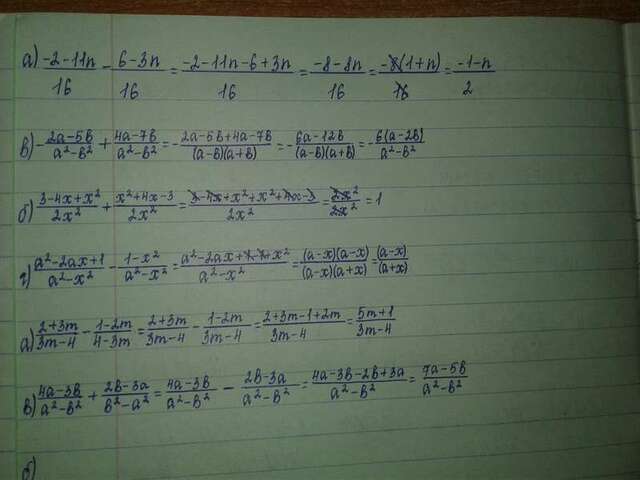 а) (-2-11n)/16 - (6-3n)/16 = (-2-11n-6+3n)/16 = (-8-8n)/16 = (-8(1+n))/16 = (-1-n)/2
в) -(2a-5b)/(a²-b²) + (4a-7b)/(a²-b²) = -(2a-5b+4a-7b)/((a-b)(a+b)) = -(6a-12b)/((a-b)(a+b)) = -(6(a-2b))/(a²-b²)
б) (3-4x+x²)/(2x²) + (x²+4x-3)/(2x²) = (3-4x+x²+x²+4x-3)/(2x²) = (2x²)/(2x²) = 1
г) (a²-2ax+1)/(a²-x²) - (1-x²)/(a²-x²) = (a²-2ax+1-1+x²)/(a²-x²) = ((a-x)(a-x))/((a-x)(a+x)) = (a-x)/(a+x)
а) (2+3m)/(3m-4) - (1-2m)/(4-3m) = (2+3m)/(3m-4) - (1-2m)/(3m-4) = (2+3m-1+2m)/(3m-4) = (5m+1)/(3m-4)
в) (4a-3b)/(a²-b²) + (2b-3a)/(b²-a²) = (4a-3b)/(a²-b²) - (2b-3a)/(a²-b²) = (4a-3b-2b+3a)/(a²-b²) = (7a-5b)/(a²-b²)
б)